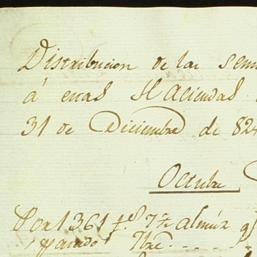 Distribucion de las sem
á esas Haciendas
31 de Diciembre de 824
Octubre
Por 1361 f.s 7½ almúz q